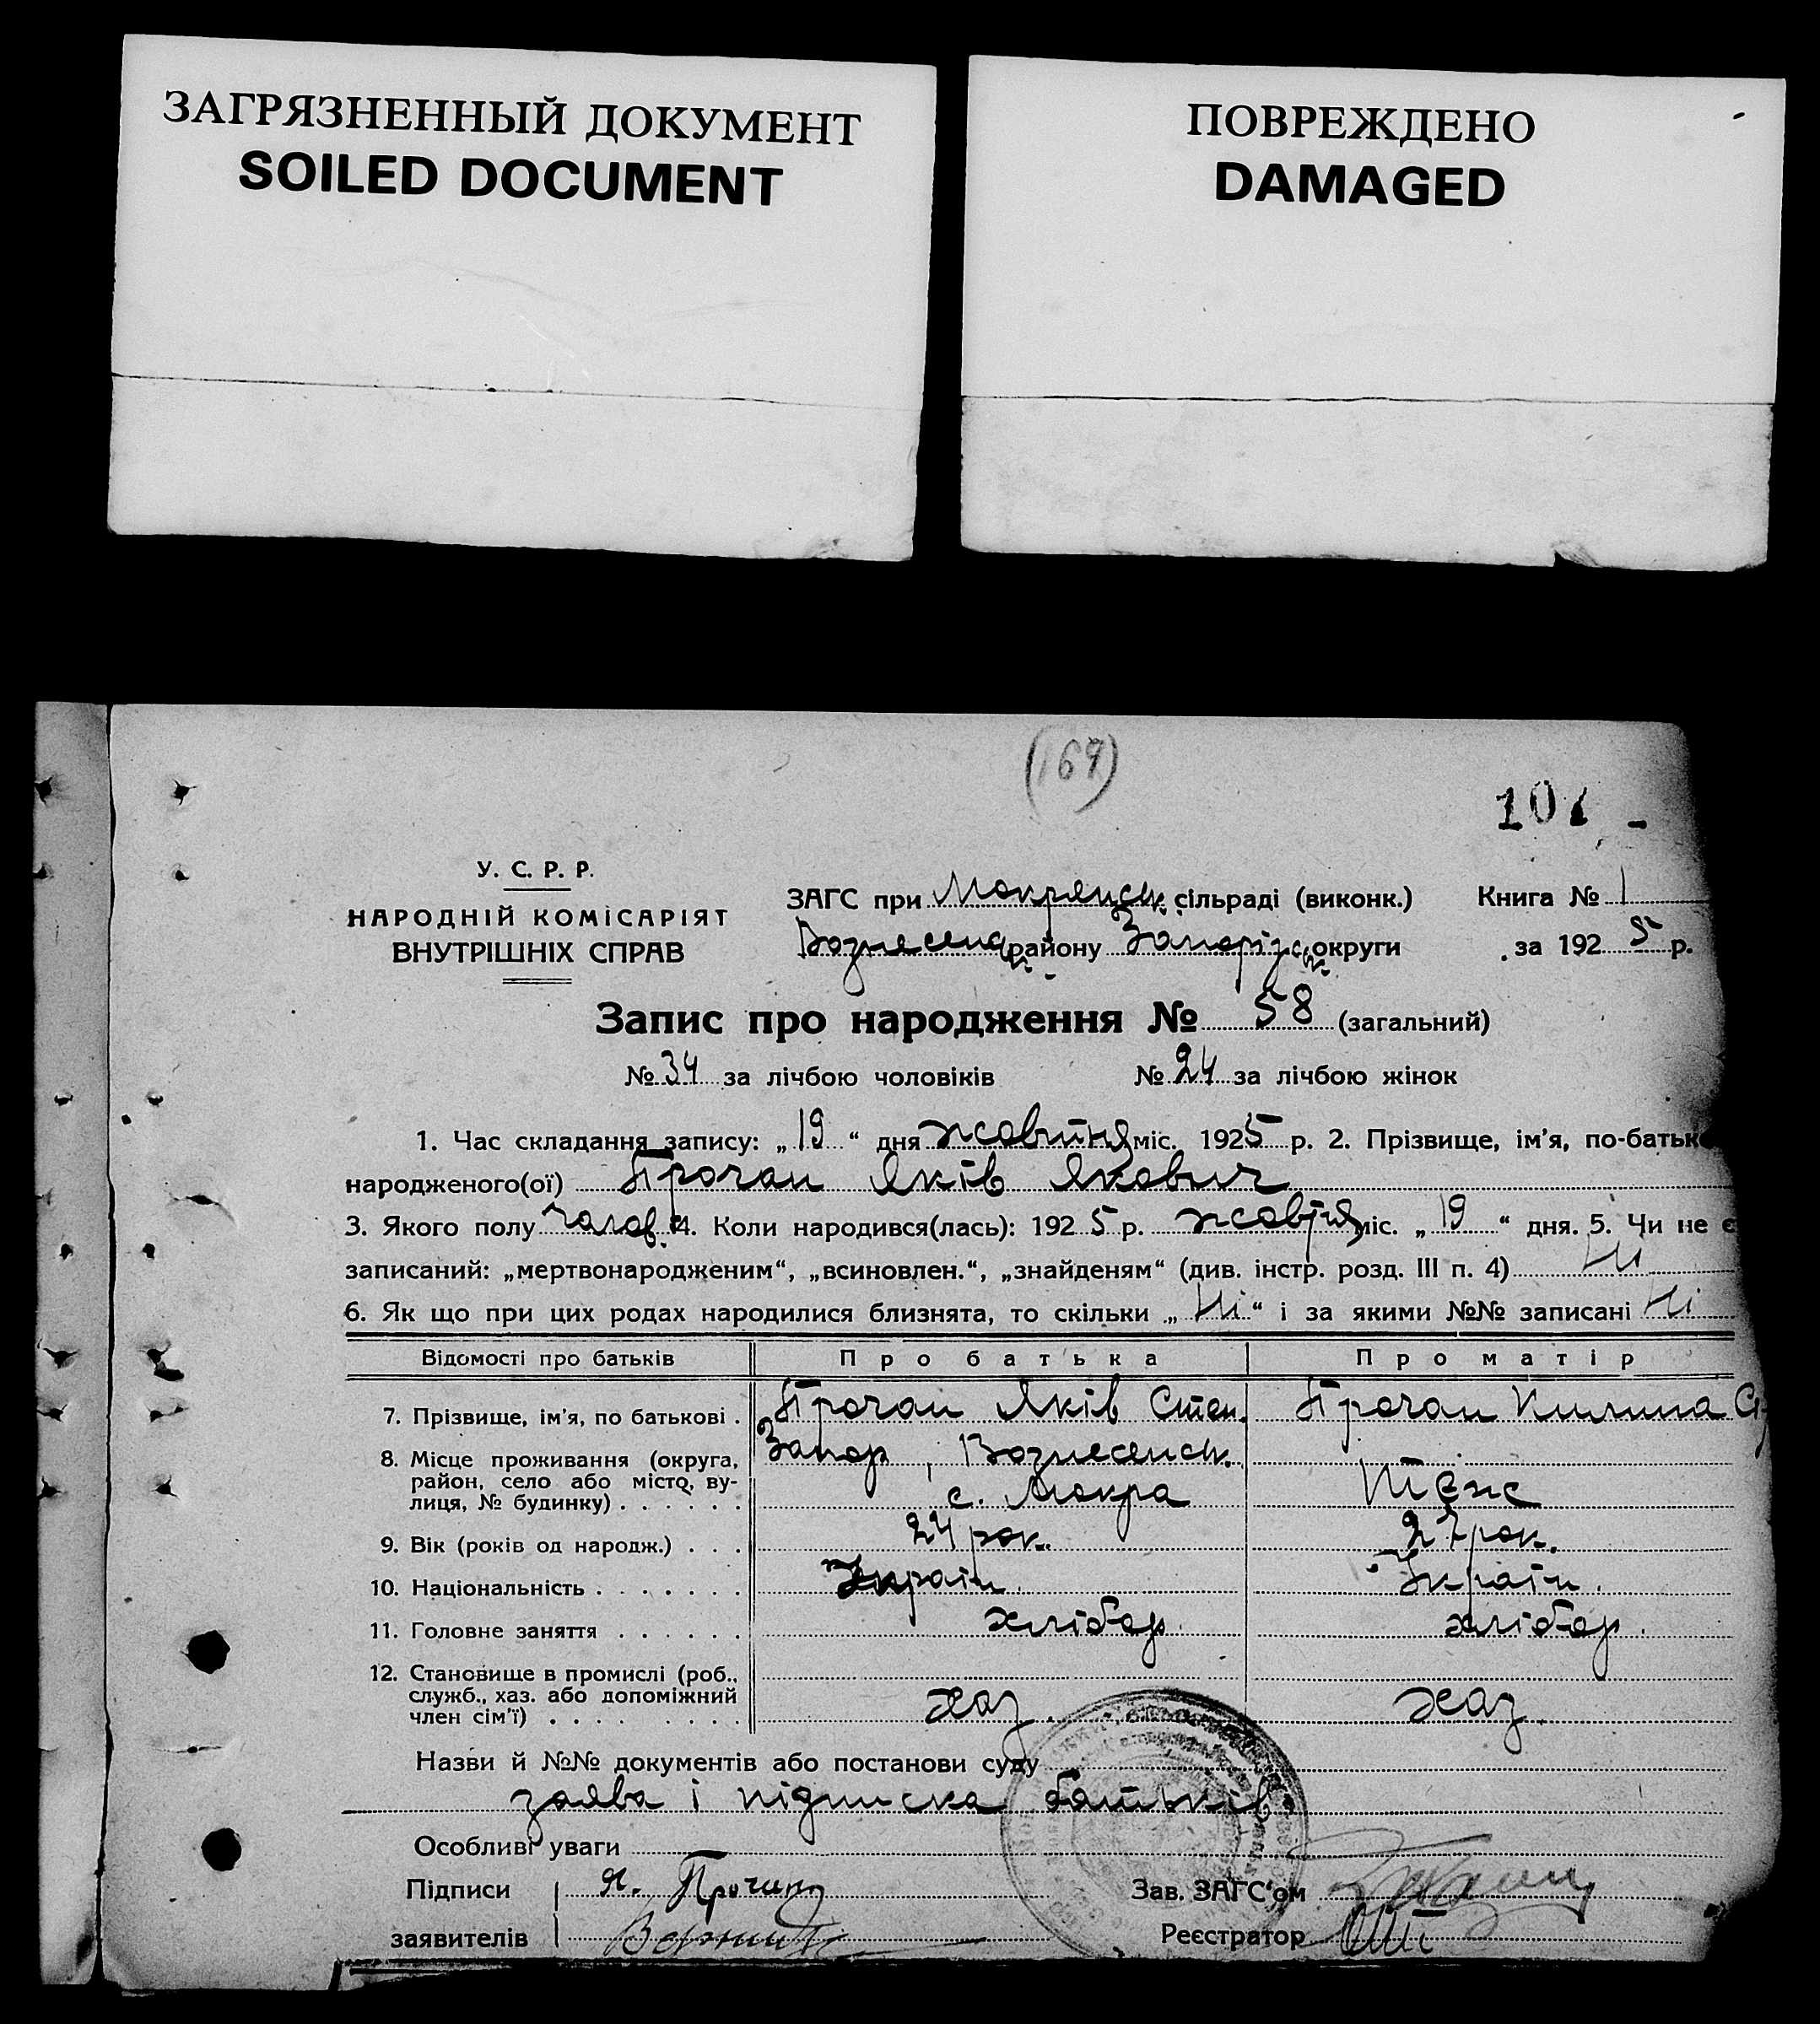 ЗАГРЯЗНЕННЫЙ ДОКУМЕНТ
SOILED DOCUMENT
ПОВРЕЖДЕНО
DAMAGED
(167)
107
У. С. Р. Р.
НАРОДНІЙ КОМІСАРІЯТ
ВНУТРІШНІХ СПРАВ
ЗАГС при Мокрянськ. сільраді (виконк.) Книга № 1
Вознесенськ району Запорізськ округи за 1925 р.
Запис про народження № 58 (загальний)
№ 34 за лічбою чоловіків № 24 за лічбою жінок
1. Час складання запису: „19“ дня жовтня міс. 1925 р. 2. Прізвище, ім’я, по-батьк
народженого(ої) Прочан Яків Якович
3. Якого полу чолов. 4. Коли народився(лась): 1925 р. жовтня міс. „19“ дня. 5. Чи не є
записаний: „мертвонародженим“, „всиновлен.“, „знайденям“ (див. інстр. розд. III п. 4) Ні
6. Як що при цих родах народилися близнята, то скільки „Ні“ і за якими №№ записані Ні
Відомості про батьків Про батька Про матір
7. Прізвище, ім’я, по батькові . Прочан Яків Степ. Прочан Килина
8. Місце проживання (округа, Запор, Вознесенськ.
район, село або місто, ву-
лиця, № будинку) . . . . . . с. Мокра теж
9. Вік (років од народж.) . . . 24 рок. 27 рок.
10. Національність . . . . . . . Україн. Україн.
11. Головне заняття . . . . . . хлібор. хлібор.
12. Становище в промислі (роб.,
служб., хаз. або допоміжний
член сім’ї) . . . . . . . . хаз. хаз.
Назви й №№ документів або постанови суду
заява і підписка батьків
Особливі уваги
Підписи Я. Прочан Зав. ЗАГС‘ом
заявителів Реєстратор